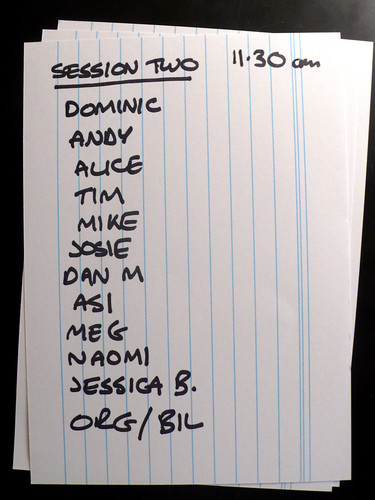 SESSION TWO 11.30 am
DOMINIC
ANDY
ALICE
TIM
MIKE
JOSIE
DAN M
ASI
MEG
NAOMI
JESSICA B.
ORG/BIL